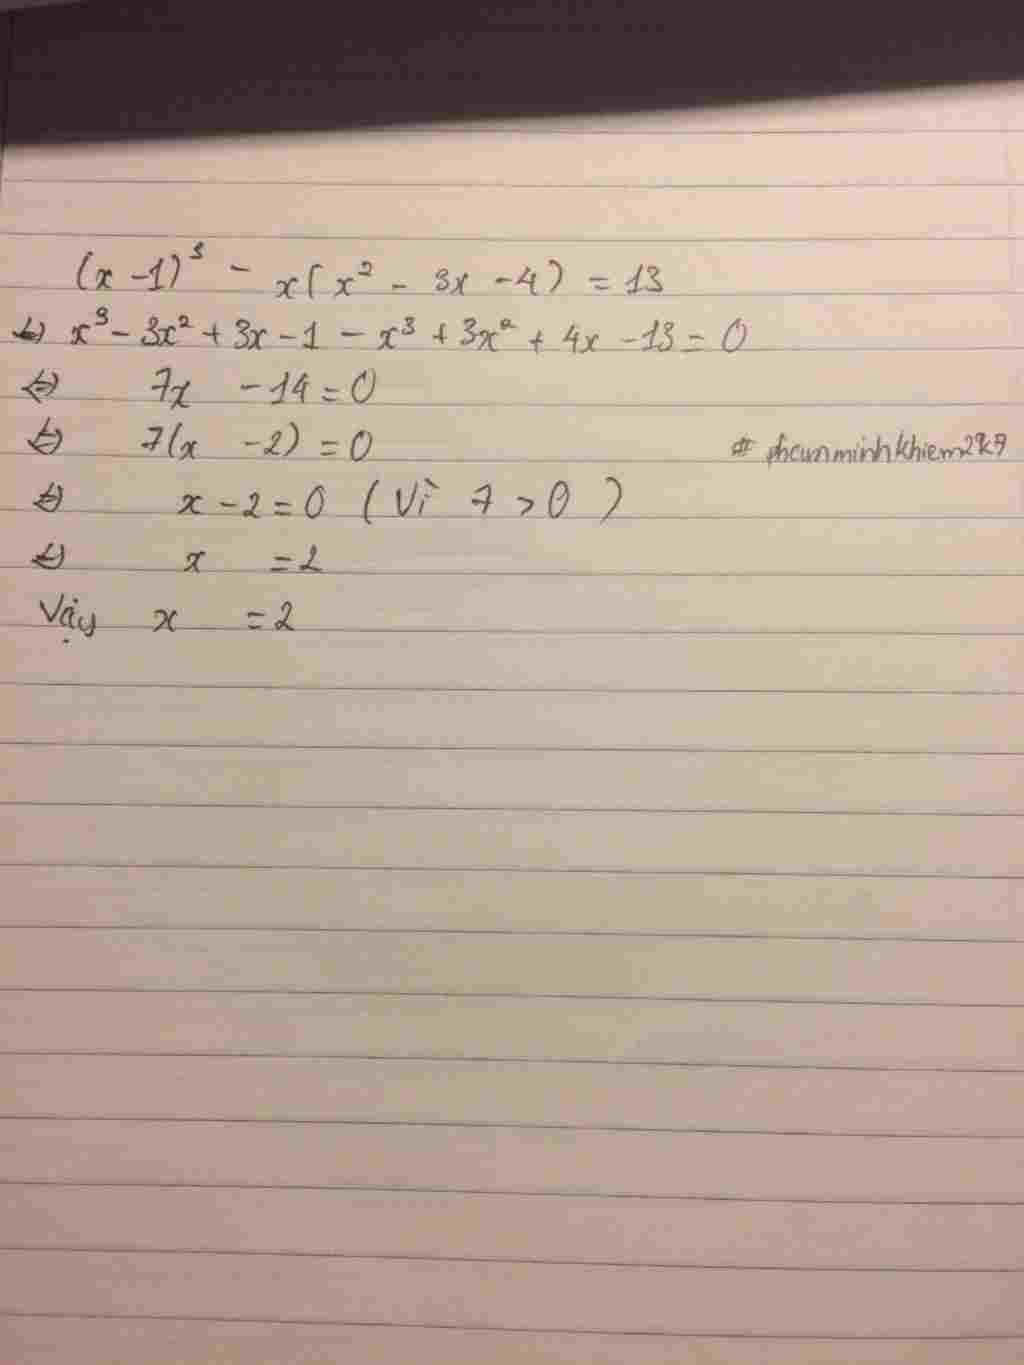 (x - 1)³ - x(x² - 3x - 4) = 13
⇔ x³ - 3x² + 3x - 1 - x³ + 3x² + 4x - 13 = 0
⇔ 7x - 14 = 0
⇔ 7(x - 2) = 0
# phamminhkhiem2k7
⇔ x - 2 = 0 (Vì 7 > 0)
⇔ x = 2
Vậy x = 2